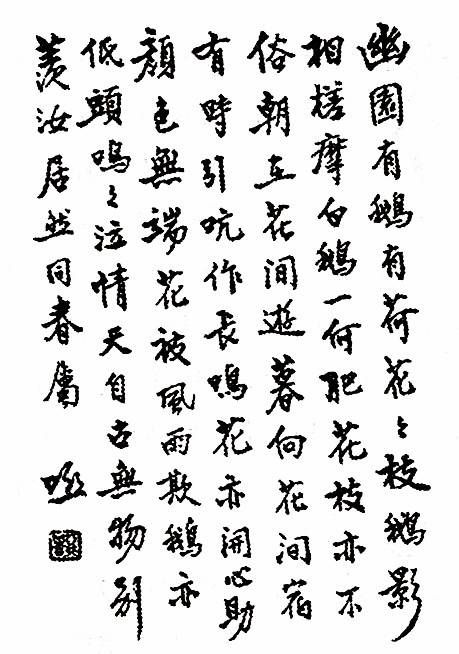 幽園有鵝有荷花々枝鵝影
相搓摩白鵝一何肥花枝亦不
俗朝在花間遊暮向花间宿
有時引吭作長鳴花亦開心助
顏色無端花被風雨欺鵝亦
低頭鳴々泣情天自古無物別
羨汝居然同眷屬